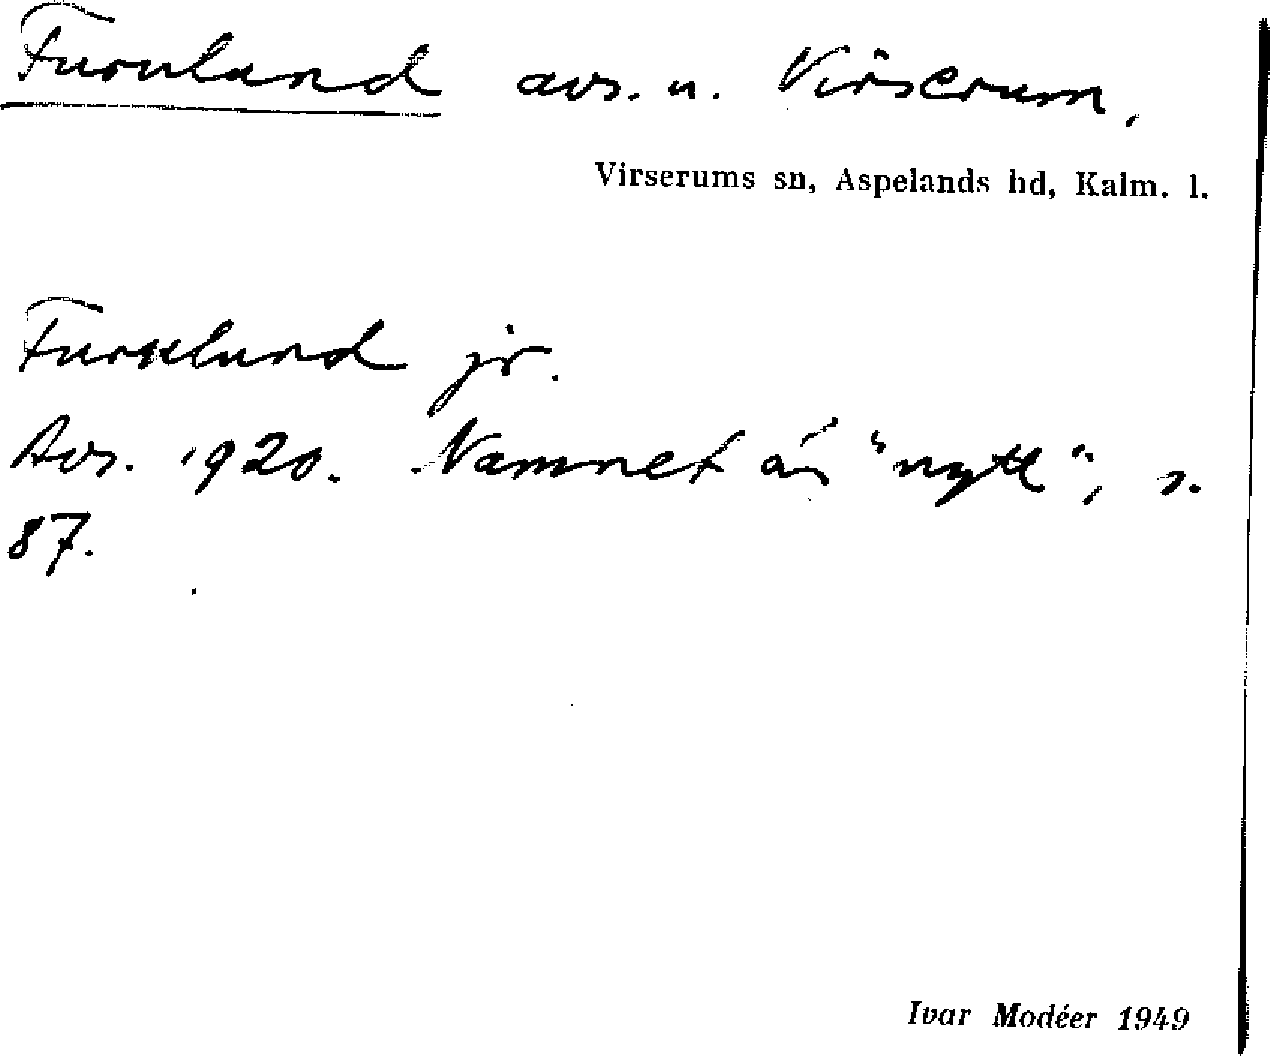 Furulund avs. u. Virserum,
Virserums sn, Aspelands hd, Kalm. l.
Furulund jr.
Avs. 1920. Namnet är "nytt", s.
87.
Ivar Modéer 1949